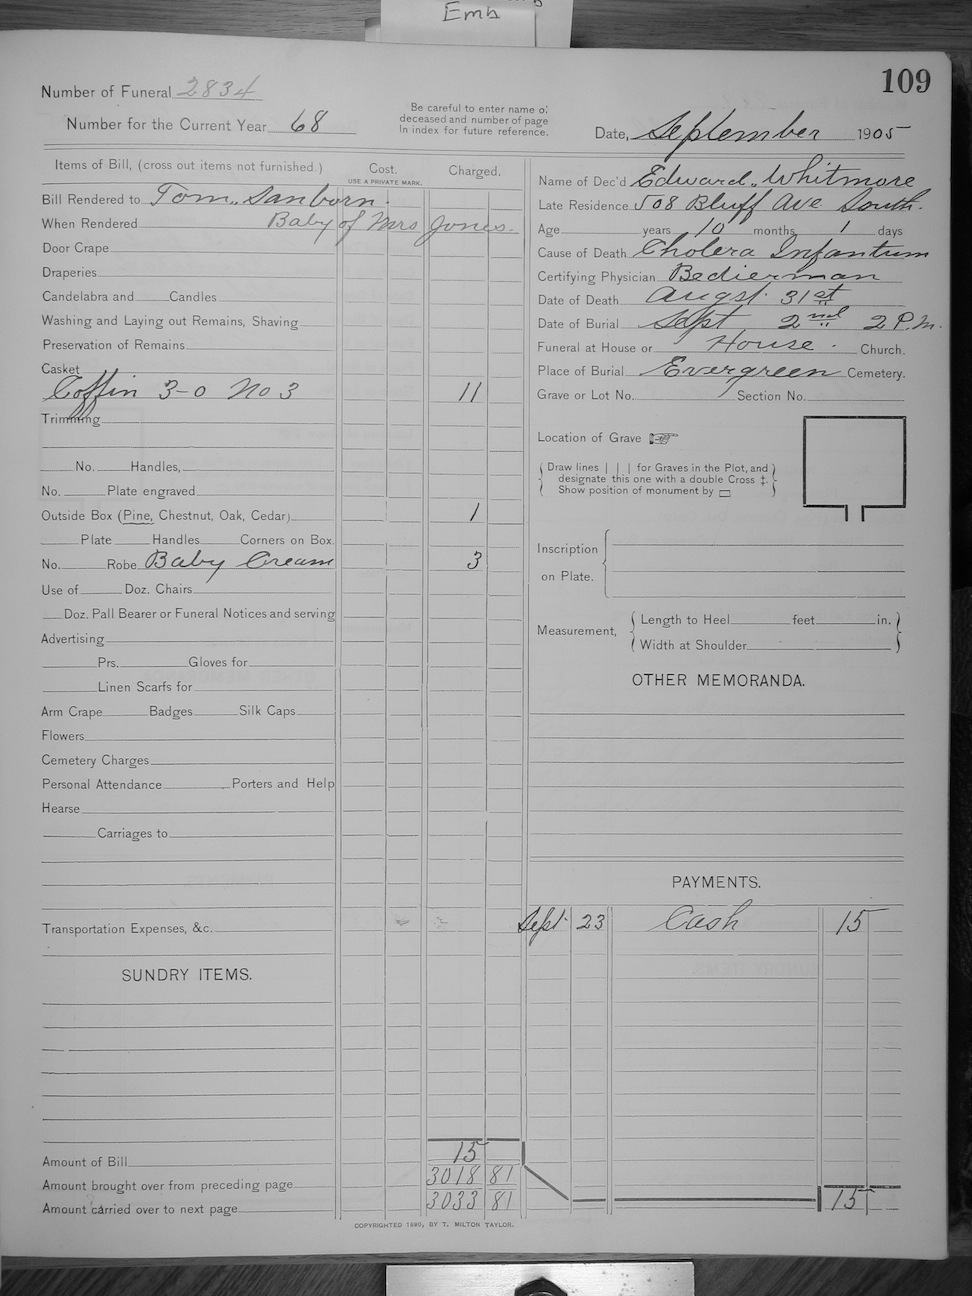 Emb
109
Number of Funeral 2834
Number for the Current Year 68
Be careful to enter name of
deceased and number of page
In index for future reference.
Date, September 1905
Items of Bill, (cross out items not furnished.)
Cost.
USE A PRIVATE MARK.
Charged.
Bill Rendered to Tom Sanborn.
When Rendered Baby of Mrs Jones.
Door Crape
Draperies
Candelabra and Candles
Washing and Laying out Remains, Shaving
Preservation of Remains
Casket
Coffin 3-0 No 3 11
Trimming
No. Handles,
No. Plate engraved
Outside Box (Pine, Chestnut, Oak, Cedar) 1
Plate Handles Corners on Box.
No. Robe Baby Cream 3
Use of Doz. Chairs
Doz. Pall Bearer or Funeral Notices and serving
Advertising
Prs. Gloves for
Linen Scarfs for
Arm Crape Badges Silk Caps
Flowers
Cemetery Charges
Personal Attendance Porters and Help
Hearse
Carriages to
Transportation Expenses, &c.
SUNDRY ITEMS.
Amount of Bill 15
Amount brought over from preceding page 3018 81
Amount carried over to next page 3033 81
Name of Dec'd Edward Whitmore
Late Residence 508 Bluff Ave South.
Age years 10 months 1 days
Cause of Death Cholera Infantum
Certifying Physician Bedierman
Date of Death Augst. 31st
Date of Burial Sept 2nd 2 P.M.
Funeral at House or House. Church.
Place of Burial Evergreen Cemetery.
Grave or Lot No. Section No.
Location of Grave ☞
Draw lines | | | for Graves in the Plot, and
designate this one with a double Cross ‡.
Show position of monument by ▭
Inscription
on Plate.
Measurement, Length to Heel feet in.
Width at Shoulder
OTHER MEMORANDA.
PAYMENTS.
Sept 23 Cash 15
15
COPYRIGHTED 1890, BY T. MILTON TAYLOR.